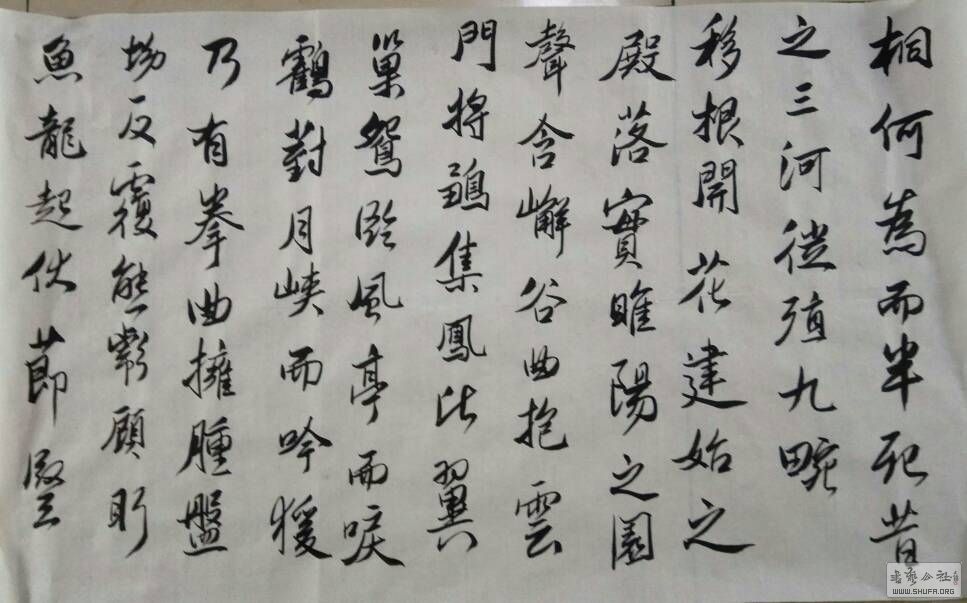 桐何為而半死昔
之三河徙殖九畹
移根開花建始之
殿落實睢陽之園
聲含嶰谷曲抱雲
門將鶵集鳳比翼
巢鴛臨風亭而唳
鶴對月峽而吟猨
乃有拳曲擁腫盤
坳反覆熊彪顧盼
魚龍起伏莭竪
書藝公社
WWW.SHUFA.ORG